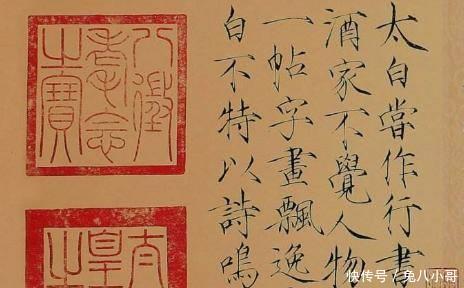 太白嘗作行書
酒家不覺人物
一帖字畫飄逸
白不特以詩鳴
八徵
耄念
之寶
太
皇
之
快传号/兔八小哥